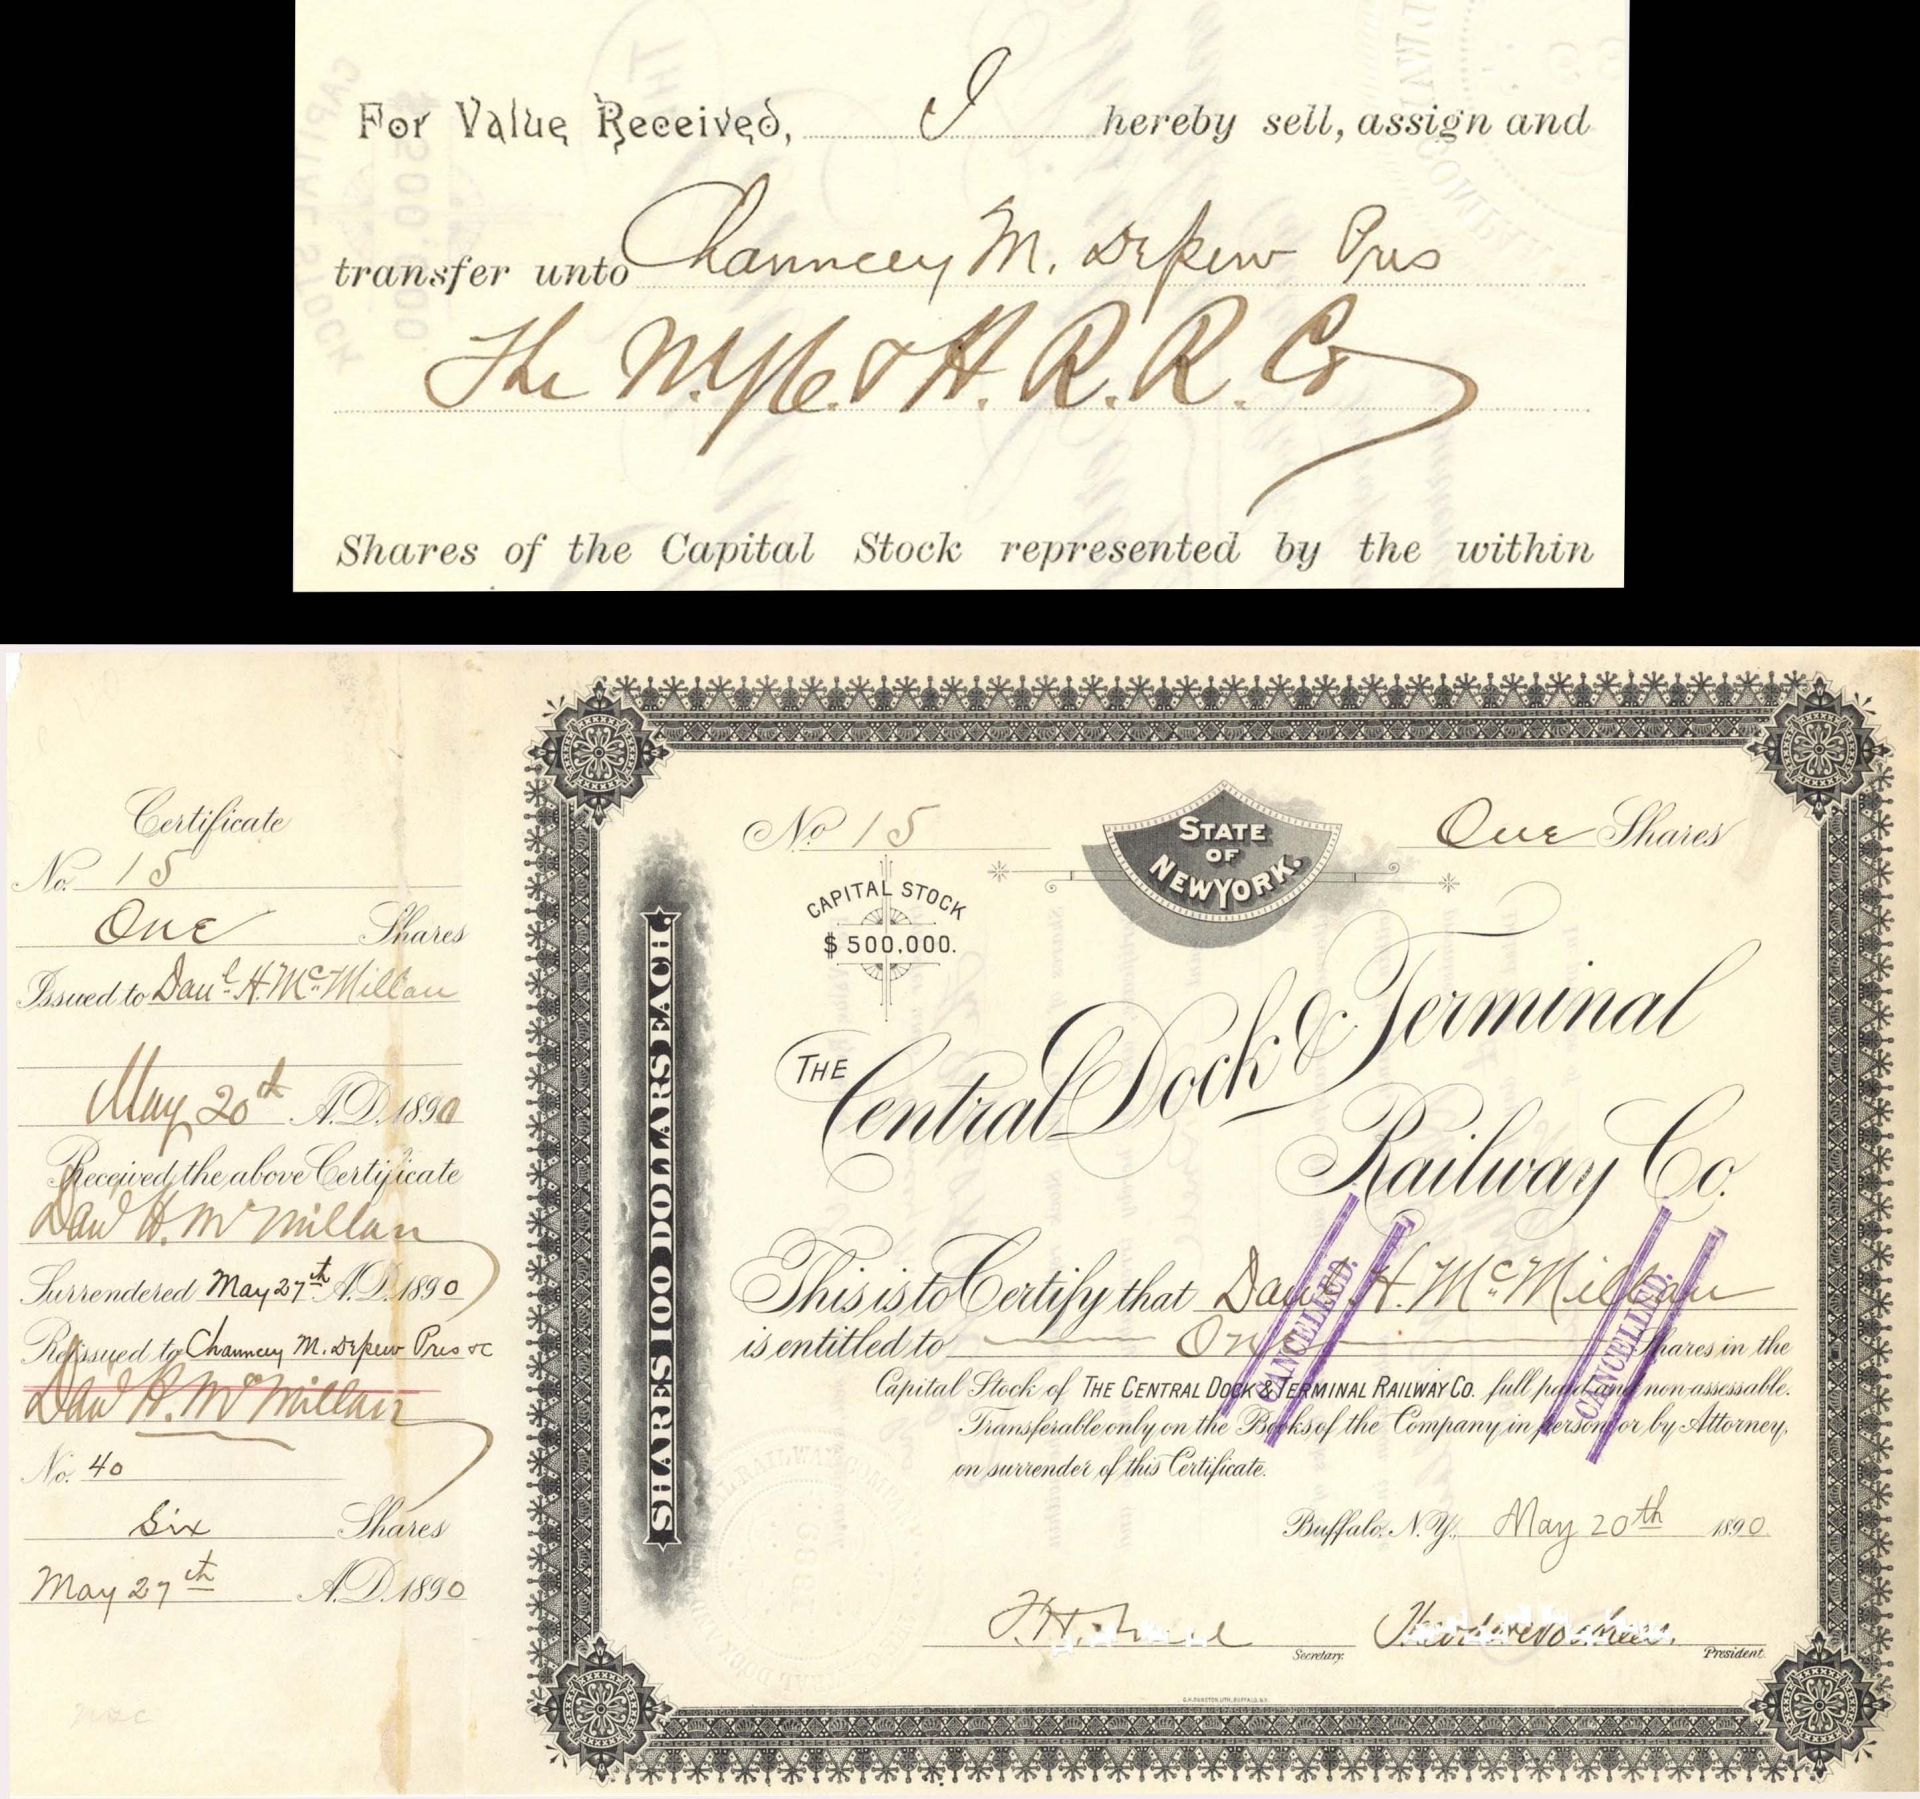 For Value Received, I hereby sell, assign and
transfer unto Chauncey M. Depew Pres
The N.Y.C. & H. R. R. R. Co
Shares of the Capital Stock represented by the within
Certificate
No. 15
One Shares
Issued to Danl. H. McMillan
May 20th A.D. 1890
Received the above Certificate
Danl H. McMillan
Surrendered May 27th A.D. 1890
Reissued to Chauncey M. Depew Pres &c
Danl H. McMillan
No. 40
Six Shares
May 27th A.D. 1890
SHARES 100 DOLLARS EACH.
No 15
STATE OF NEW YORK.
One Shares
CAPITAL STOCK
$500,000.
THE Central Dock & Terminal
Railway Co.
This is to Certify that Danl. H. McMillan
is entitled to One Shares in the
Capital Stock of THE CENTRAL DOCK & TERMINAL RAILWAY CO. full paid and non-assessable.
Transferable only on the Books of the Company in person or by Attorney,
on surrender of this Certificate.
CANCELLED.
CANCELLED.
Buffalo, N.Y., May 20th 1890
Secretary.
President.
G.H. DUNSTON, LITH., BUFFALO, N.Y.